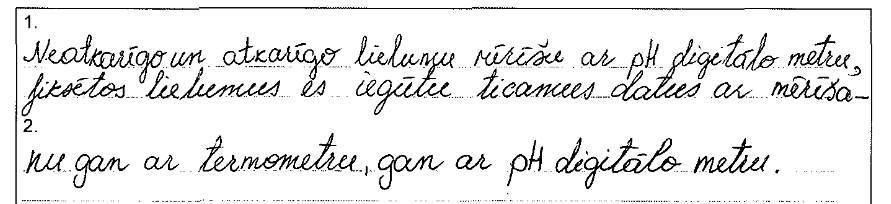 1.
Neatkarīgo un atkarīgo lielumu mērīšu ar pH digitālo metru,
fiksētos lielumus es iegūtu ticamus datus ar mērīša-
2.
nu gan ar termometru, gan ar pH digitālo metru.